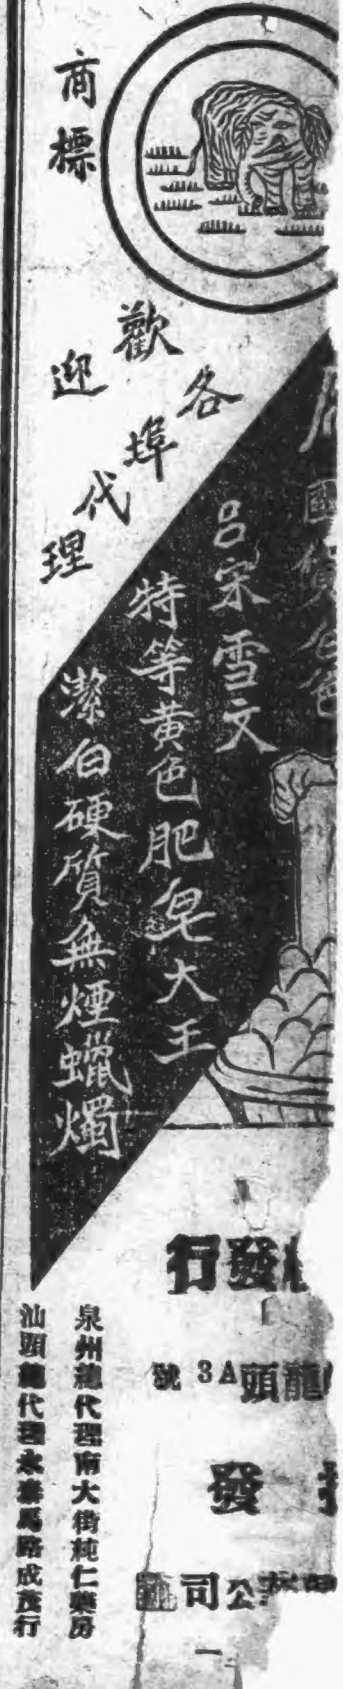 商標
歡迎
各埠代理
國貨白色
呂宋雪文
特等黃色肥皂大王
潔白硬質無煙蠟燭
發行
龍頭A3號
發
公司
泉州總代理南大街純仁藥房
汕頭總代理永泰馬路成茂行